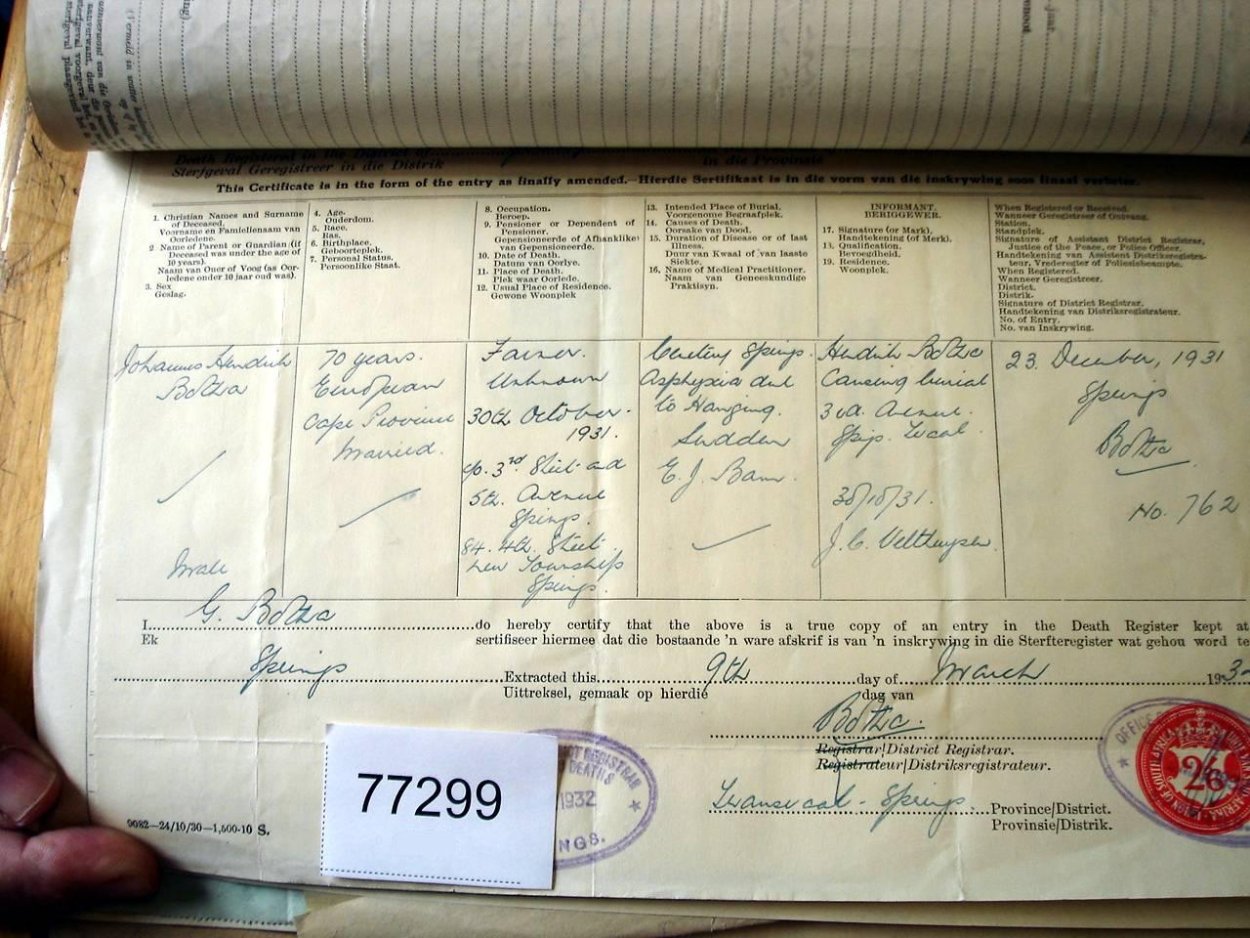 Death Registered in the District of
Sterfgeval Geregistreer in die Distrik
In die Provinsie
This Certificate is in the form of the entry as finally amended.—Hierdie Sertifikaat is in die vorm van die inskrywing soos finaal verbeter.
1. Christian Names and Surname of Deceased.
Voorname en Familienaam van Oorledene.
2 Name of Parent or Guardian (if Deceased was under the age of 10 years).
Naam van Ouer of Voog (as Oorledene onder 10 jaar oud was).
3. Sex
Geslag.
4. Age.
Ouderdom.
5. Race.
Ras.
6. Birthplace.
Geboorteplek.
7. Personal Status.
Persoonlike Staat.
8. Occupation.
Beroep.
9. Pensioner or Dependent of Pensioner.
Gepensioneerde of Afhanklike van Gepensioneerde.
10. Date of Death.
Datum van Oorlye.
11. Place of Death.
Plek waar Oorlede.
12. Usual Place of Residence.
Gewone Woonplek
13. Intended Place of Burial.
Voorgenome Begraafplek.
14. Causes of Death.
Oorsake van Dood.
15. Duration of Disease or of last Illness.
Duur van Kwaal of van laaste Siekte.
16. Name of Medical Practitioner.
Naam van Geneeskundige Praktisyn.
INFORMANT.
BERIGGEWER.
17. Signature (or Mark).
Handtekening (of Merk).
18. Qualification.
Bevoegdheid.
19. Residence.
Woonplek.
When Registered or Received.
Wanneer Geregistreer of Ontvang.
Station.
Standplek.
Signature of Assistant District Registrar, Justice of the Peace, or Police Officer.
Handtekening van Assistent Distriksregistrateur, Vrederegter of Polisiebeampte.
When Registered.
Wanneer Geregistreer.
District.
Distrik.
Signature of District Registrar.
Handtekening van Distriksregistrateur.
No. of Entry.
No. van Inskrywing.
Johannes Hendrik
Botha
Male
70 years.
European
Cape Province
Married.
Farmer.
Unknown
30th October.
1931.
3rd Street and
5th. Avenue
Springs.
84. 4th. Street
New Township
Springs.
Cemetery Springs.
Asphyxia due
to Hanging.
Sudden
E. J. Bam
Hendrik Botha
Causing burial
3rd. Avenue.
30/10/31.
J. C. Velthuysen.
23. December, 1931
Springs
Botha
No. 762
I G. Botha do hereby certify that the above is a true copy of an entry in the Death Register kept at
Ek sertifiseer hiermee dat die bostaande 'n ware afskrif is van 'n inskrywing in die Sterfteregister wat gehou word te
Springs Extracted this 9th day of March 1932
Uittreksel, gemaak op hierdie dag van
Botha.
Registrar/District Registrar.
Registrateur/Distriksregistrateur.
Transvaal - Springs Province/District.
Provinsie/Distrik.
77299
1932
2/6
9082—24/10/30—1,500-10 S.